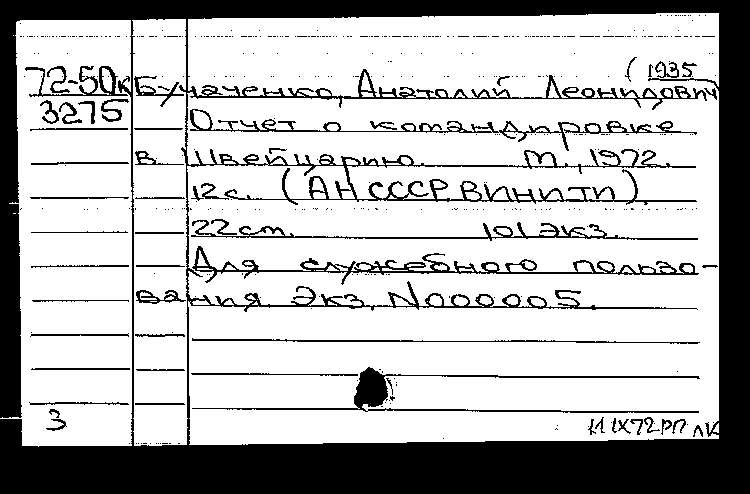 (1935
72-50к Бучаченко, Анатолий Леонидович
3275 Отчет о командировке
в Швейцарию. М., 1972.
12 с. (АН СССР. ВИНИТИ).
22 см. 101 экз.
Для служебного пользо-
вания. Экз. N000005.
3
IX72РП